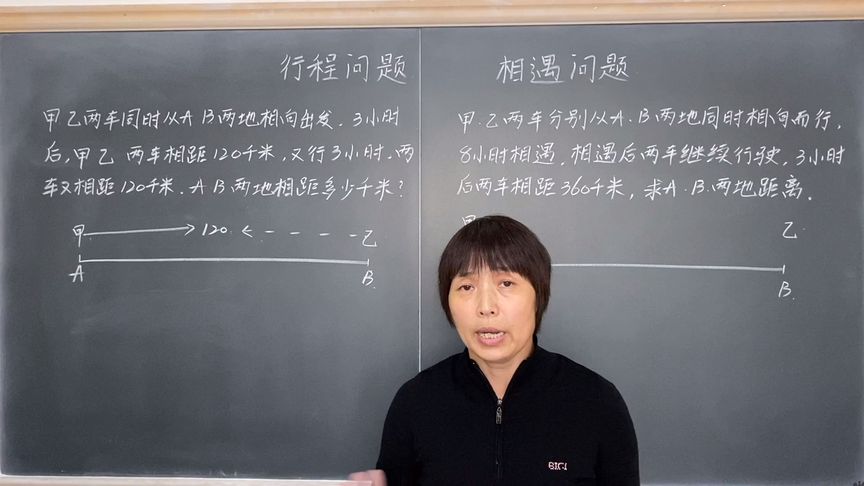 行程问题
甲乙两车同时从A B两地相向出发.3小时
后,甲乙 两车相距120千米,又行3小时,两
车又相距120千米.A B两地相距多少千米?
甲 120 乙
A B
相遇问题
甲.乙两车分别从A.B两地同时相向而行,
8小时相遇,相遇后两车继续行驶,3小时
后两车相距360千米,求A.B.两地距离.
乙
B